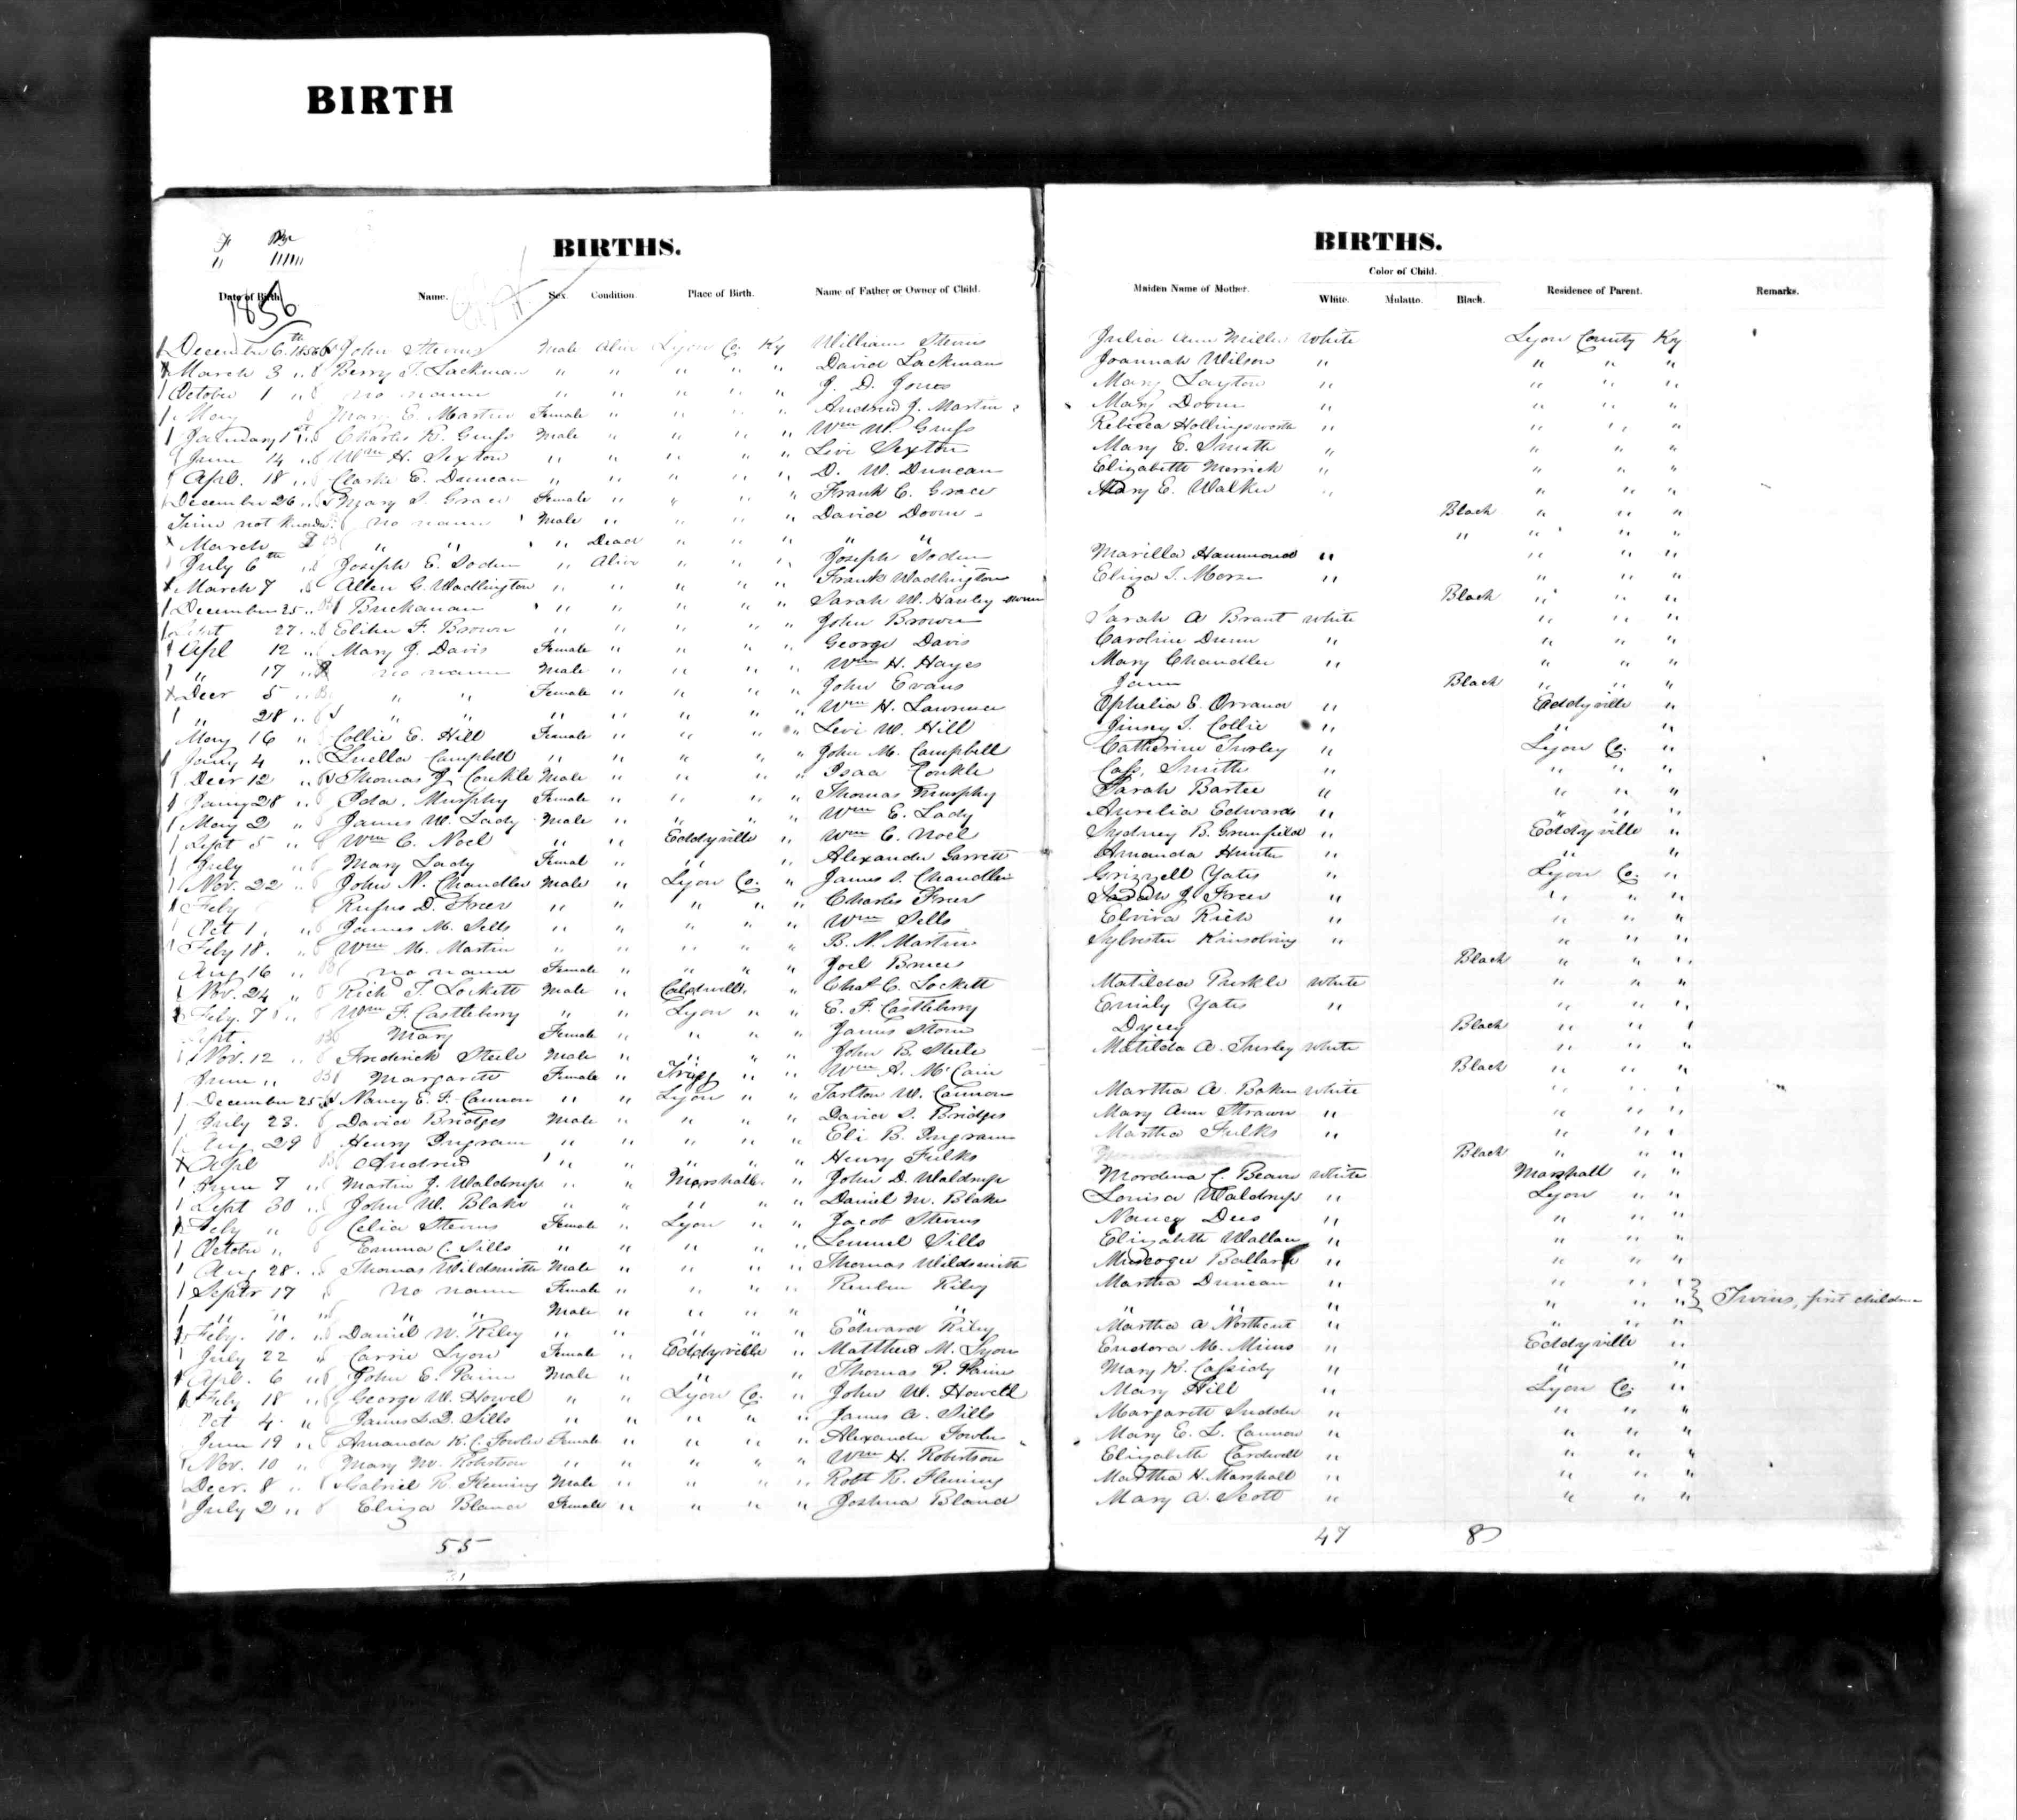 BIRTH
BIRTHS.
BIRTHS.
1856
Color of Child.
Date of Birth. Name. Sex. Condition. Place of Birth. Name of Father or Owner of Child. Maiden Name of Mother. White. Mulatto. Black. Residence of Parent. Remarks.
December 6th 1856 John Stevens Male Alive Lyon Co. Ky William Stevens Julia Ann Miller White Lyon County Ky
March 3 " Berry T. Lackman " " " " " David Lackman Joannah Wilson " " " "
October 1 " no name " " " " " J. D. Jones Mary Layton " " " "
May Mary E. Martin Female " " " " Andrew J. Martin Mary Doom " " " "
January 1st " Charles R. Male " " " " Wm W. Rebecca Hollingsworth " " " "
June 14 " Wm H. Sexton " " " " " Levi Sexton Mary E. Smith " " " "
Apl. 18 " E. Duncan " " " " " D. W. Duncan Elizabeth Merrick " " " "
December 26 " Mary Grace Female " " " " Frank C. Grace Mary E. Walker " " " "
Time not known no name Male " " " " David Doom Black " " "
March " " " Dead " " " " " " " " "
July 6th " Joseph E. Soden " Alive " " " Joseph Soden Marilla Hammond " " " "
March 7 " Allen G. Wadlington " " " " " Frank Wadlington Eliza T. " " " "
December 25 " Buchanan " " " " " Sarah W. Black " " "
Sept 27 " Elihu F. Brown " " " " " John Brown Sarah A Brant White " " "
Apl 12 " Mary J. Davis Female " " " " George Davis Caroline Dunn " " " "
" 17 " no name Male " " " " Wm H. Hayes Mary Chandler " " " "
Decr 5 " " " Female " " " " John Evans Jane Black " " "
" 28 " " " " " " " " Wm H. Lawrence Ophelia E. " Eddyville "
May 16 " Collie E. Hill Female " " " " Levi W. Hill Jinsey T. Collie " " "
Jany 4 " Luella Campbell " " " " " John M. Campbell Catherine " Lyon Co. "
Decr 12 " Thomas J. Conkle Male " " " " Isaa Conkle Cass. Smith " " " "
Jany 28 " Ida. Murphy Female " " " " Thomas Murphy Sarah Bartee " " " "
May 2 " James W. Lady Male " " " " Wm E. Lady Aurelia Edwards " " " "
Sept 5 " Wm C. Noel " " Eddyville " Wm C. Noel Sydney B. Grumfield " Eddyville "
July " Mary Lady Femal " " " Alexander Garrett Amanda Hunter " " "
Nov. 22 " John N. Chandler Male " Lyon Co. " James Chandler Grizzell Yates " Lyon Co. "
Feby Rufus D. Freer " " " " " Charles Freer Sarah J. Freer " " " "
Oct 1 " James M. Sells " " " " " Wm Sells Elvira Rich " " " "
Feby 18 " Wm M. Martin " " " " " B. N. Martin Sylvester Kinsolving " " " "
Aug 16 " no name Female " " " " Joel Black " " "
Nov. 24 " Rich T. Lockett Male " Caldwell " Chat C. Lockett Matilda White " " "
Feby. 7 " Wm F. Castleberry " " Lyon " " E. F. Castleberry Emily Yates " " " "
Sept. Mary Female " " " " James Stone Dycey Black " " "
Nov. 12 " Frederick Steele Male " " " " John B. Steele Matilda A. White " " "
June " Margarett Female " Trigg " " Wm A. McCain Black " " "
December 25 Nancy E. F. Cannon " " Lyon " " Tarlton W. Cannon Martha A. Baker White " " "
July 23. David Bridges Male " " " " David S. Bridges Mary Ann " " " "
Aug 29 Henry Ingram " " " " " Eli B. Ingram Martha Fulks " " " "
Apl Andrew " " " " " Henry Fulks Black " " "
June 7 " Martin J. Waldrup " " Marshall " John D. Waldrup C. White Marshall " "
Sept 30 " John W. Blake " " " " " Daniel M. Blake Louisa Waldrup " Lyon " "
Feby " Celia Stevens Female " Lyon " " Jacob Stevens Nancy " " " "
October " Emma C. Sills " " " " " Lemuel Sills Elizabeth Wallace " " " "
Aug 28. " Thomas Wildsmith Male " " " " Thomas Wildsmith Ballard " " " "
Septr 17 " no name Female " " " " Reuben Riley Martha Duncan " " " "
" " " " " Male " " " " " " " " " " " " Twins, first children
Feby. 10. " Daniel W. Riley " " " " " Edward Riley Martha A Northcut " " " "
July 22 " Carrie Lyon Female " Eddyville " Matthew M. Lyon Eudora M. Mims " Eddyville "
Apl. 6 " John E. Paine Male " " " Thomas P. Paine Mary K. Cassidy " " "
Feby 18 " George W. Howel " " Lyon Co. " John W. Howell Mary Hill " Lyon Co. "
Oct 4 " James L. D. Sills " " " " " James A. Sills Margarett " " " "
June 19 " Amanda K. C. Fowler Female " " " " Alexander Fowler Mary E. L. Cannon " " " "
Nov. 10 " Mary M. Robertson " " " " " Wm H. Robertson Elizabeth Cardwell " " " "
Decr. 8 " Gabriel R. Fleming Male " " " " Robt R. Fleming Martha H. Marshall " " " "
July 2 " Eliza Bland Female " " " " Joshua Bland Mary A. Scott " " " "
55 47 8